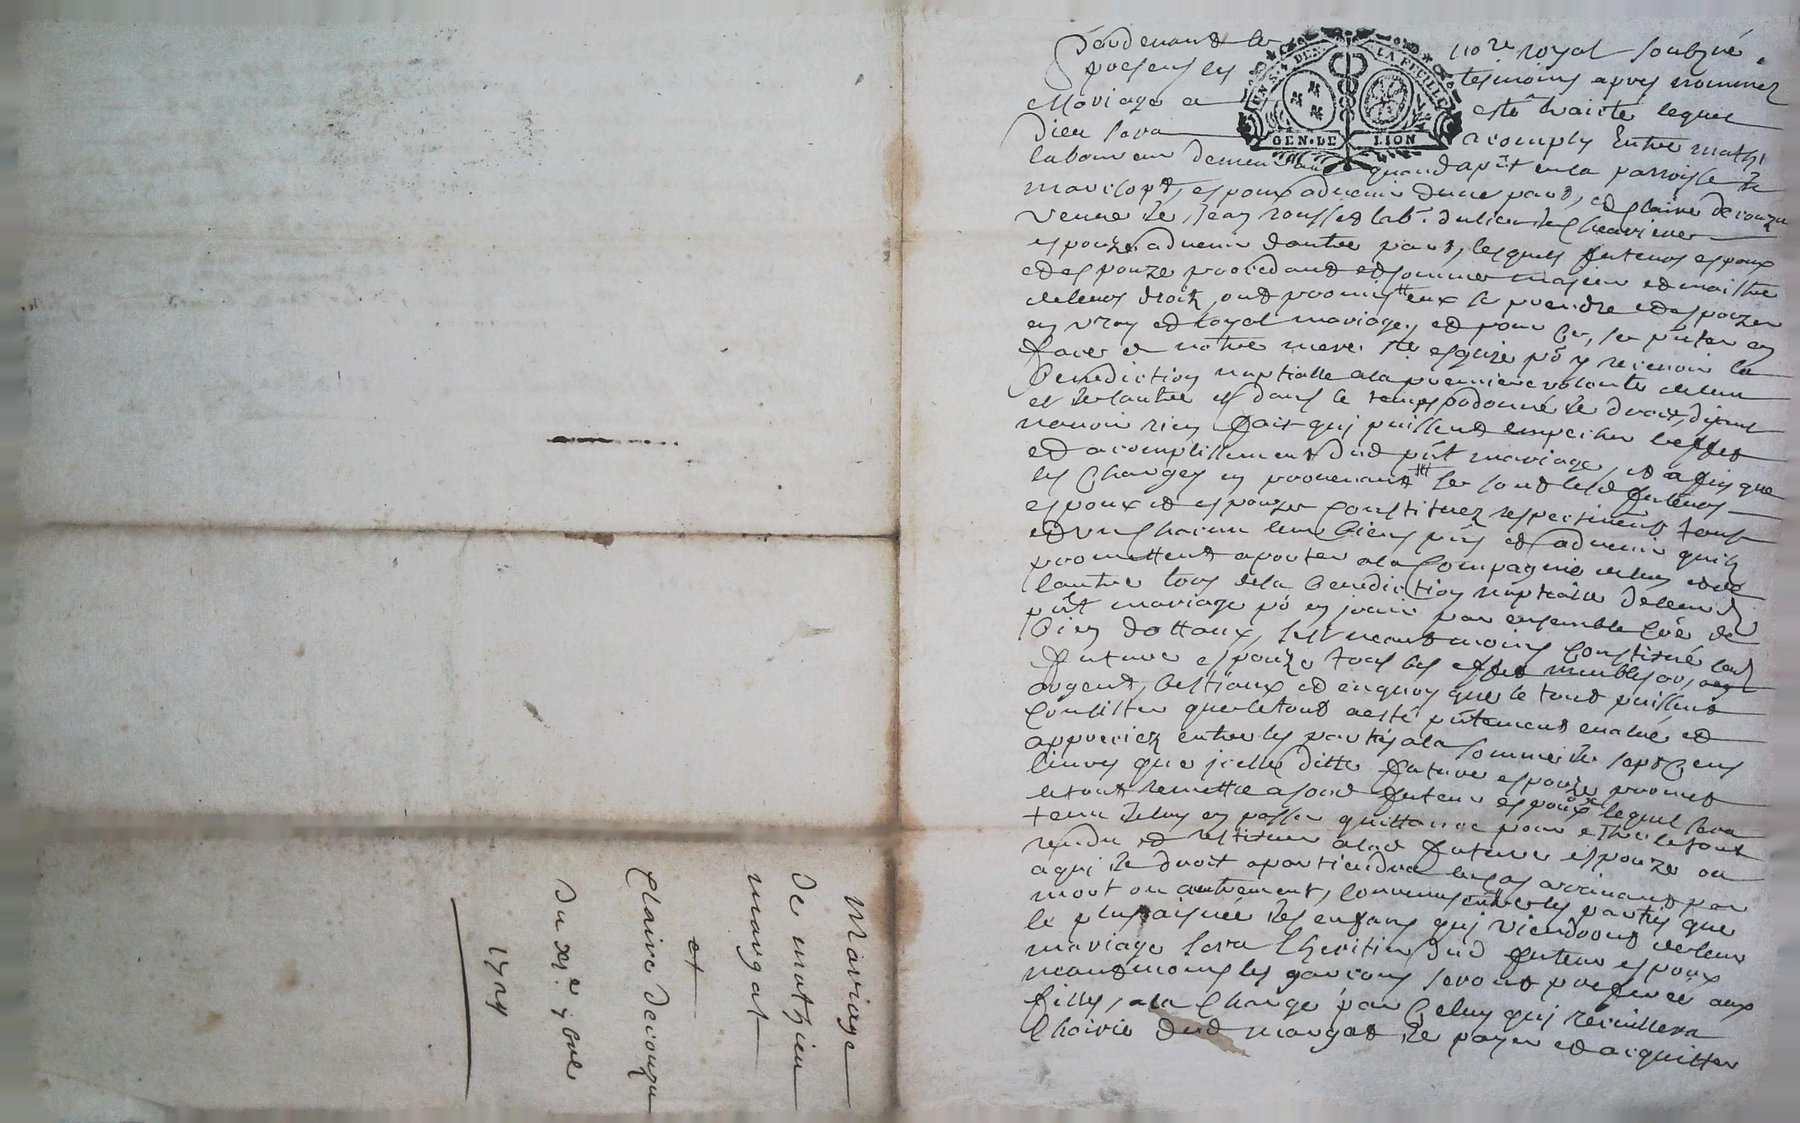 Mariage
de mathieu
margat
et
Claire decouzu
du xxje. 9bre
1724
UN S. 4 DEN. LA FEUILLE
GEN. DE LION
Pardevant le nore royal soubzné
presens les tesmoins apres nommez
Mariage a esté traicté lequel
Dieu sera acomply Entre math
laboureur demeurant quand a pnt en la parroisse de
espoux advenir dune part, et claire decouzu
vefve de Jean rousset lab.
espouze advenir dautre part, lesquels futurs espoux
et espouze procedant et comme majeur et maistre
de leurs droits, ont promis eux se prendre et espouzer
en vray et loyal mariage, et pour ce, se pnter en
face de notre mere ste esglize po y recevoir la
Benediction nuptialle a la premiere volonté de lun
et de lautre et dans le temps ordonné de droit, disant
navoir rien fait qui puissent empecher leffet
et acomplissement dud pnt mariage, et afin que
les Charges en provenant se sont lesd futurs
espoux et espouze constituez respectivemt tous
et un chacun leur biens pns et advenir quils
promettent aporter a la Compagnie de lun et de
lautre lors de la Benediction nuptialle de leur
pnt mariage po en jouir par ensemble Coe de
bien dottaux, sest neantmoins constitué lad
future espouze tous les effets meubles or,
argent, bestiaux et en quoy que le tout puissent
Consister que le tout a esté pntement evalué et
appreciez entre les parties a la somme de sept Cens
livres que jcelle ditte future espouze promet
le tout remettre aud futeur espoux lequel sera
tenu de luy en passer quittance pour estre le tout
rendu et restituer a lad future espouze ou
a qui de droit apartiendra le cas arrivant par
mort ou autrement, Convenu entre les parties que
le plus aisnée des enfans qui viendront de leur
mariage sera lheritier dud futeur espoux
neantmoins les garcons seront preferée aux
filles, a la Charge par Celuy qui receuillera
lhoirie dud margat de payer et acquitter